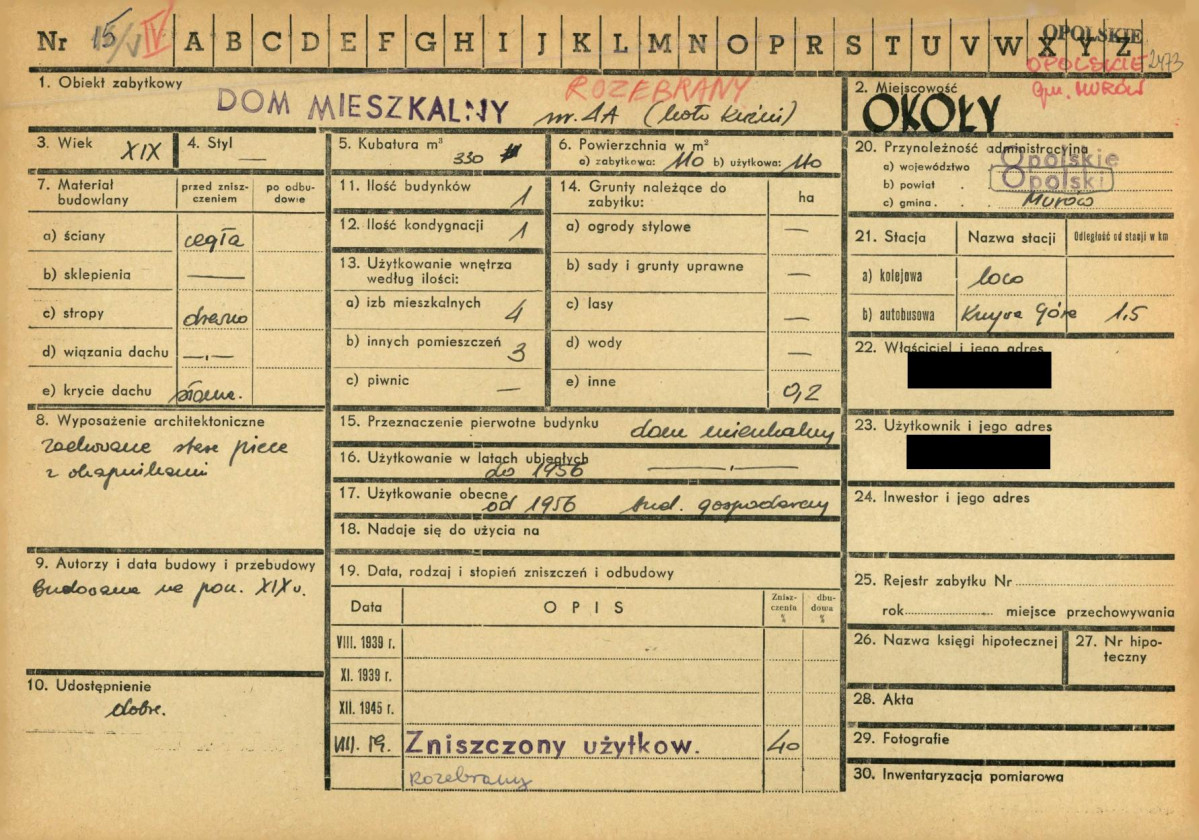 Nr 15/V IV A B C D E F G H I J K L M N O P R S T U V W X Y Z OPOLSKIE
OPOLSKIE 2473
gm. MURÓW
1. Obiekt zabytkowy
DOM MIESZKALNY
ROZEBRANY
nr. 1A (koło
2. Miejscowość
OKOŁY
3. Wiek XIX
4. Styl —
5. Kubatura m³ 330
6. Powierzchnia w m²
a) zabytkowa: 110 b) użytkowa: 110
7. Materiał budowlany
przed znisz-
czeniem
po odbu-
dowie
a) ściany cegła
b) sklepienia —
c) stropy drewno
d) wiązania dachu —„—
e) krycie dachu słoma.
8. Wyposażenie architektoniczne
zachowane stare piece
z okapnikami
9. Autorzy i data budowy i przebudowy
Budowane na pocz. XIX w.
10. Udostępnienie
dobre.
11. Ilość budynków 1
12. Ilość kondygnacji 1
13. Użytkowanie wnętrza
według ilości:
a) izb mieszkalnych 4
b) innych pomieszczeń 3
c) piwnic —
14. Grunty należące do
zabytku:
ha
a) ogrody stylowe —
b) sady i grunty uprawne —
c) lasy —
d) wody —
e) inne 0,2
15. Przeznaczenie pierwotne budynku dom mieszkalny
16. Użytkowanie w latach ubiegłych
do 1956 —„—
17. Użytkowanie obecne
od 1956 bud. gospodarczy
18. Nadaje się do użycia na
19. Data, rodzaj i stopień zniszczeń i odbudowy
Data
OPIS
Znisz-
czenia
%
dbu-
dowa
%
VIII. 1939 r.
XI. 1939 r.
XII. 1945 r.
VIII. 59. Zniszczony użytkow. 40
Rozebrany
20. Przynależność administracyjna
a) województwo Opolskie
b) powiat Opolski
c) gmina Murów
21. Stacja
Nazwa stacji
Odległość od stacji w km
a) kolejowa loco
b) autobusowa Krzywa Góra 1,5
22. Właściciel i jego adres
23. Użytkownik i jego adres
24. Inwestor i jego adres
25. Rejestr zabytku Nr
rok miejsce przechowywania
26. Nazwa księgi hipotecznej
27. Nr hipo-
teczny
28. Akta
29. Fotografie
30. Inwentaryzacja pomiarowa